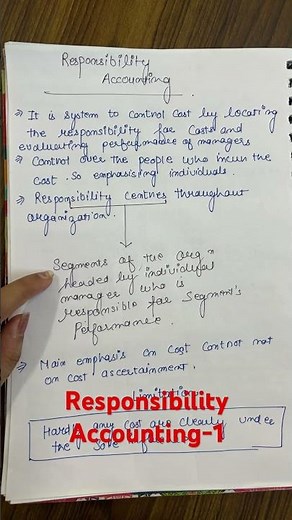 Responsibility
Accounting
⇒ It is system to control cost by locating
the responsibility for costs and
evaluating performance of managers
⇒ Control over the people who incur the
cost. So emphasising individuals.
⇒ Responsibility centres throughout
organization.
Segments of the orgⁿ
headed by individual
manager who is
responsible for segment's
Performance.
⇒ Main emphasis on cost control not
on cost ascertainment.
Limitation
Responsibility
Accounting-1
Hardly any cost are clearly under
the sole